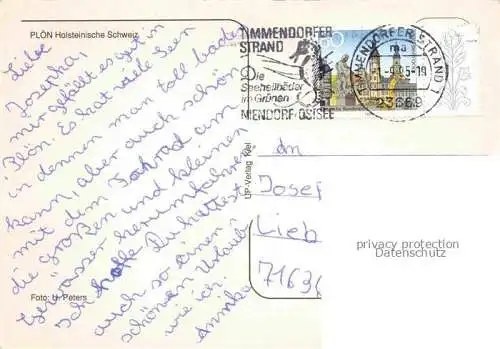 PLÖN Holsteinische Schweiz
Liebe
Josepha,
mir gefällt es gut in
Plön. Es hat viele Seen
in denen man toll baden
kann, aber auch schön
mit dem Fahrrad um
die "großen und kleinen
Gewässer herumfahren
Ich hoffe Du hattest
auch so einen
schönen Urlaub
wie ich.
Annika
Foto: H. Peters
UP-Verlag Kiel
TIMMENDORFER
STRAND
Die
Seeheilbäder
im Grünen
NIENDORF/OSTSEE
TIMMENDORFER STRAND 1
ma
23669
An
Josef
Lieb
7163
privacy protection
Datenschutz